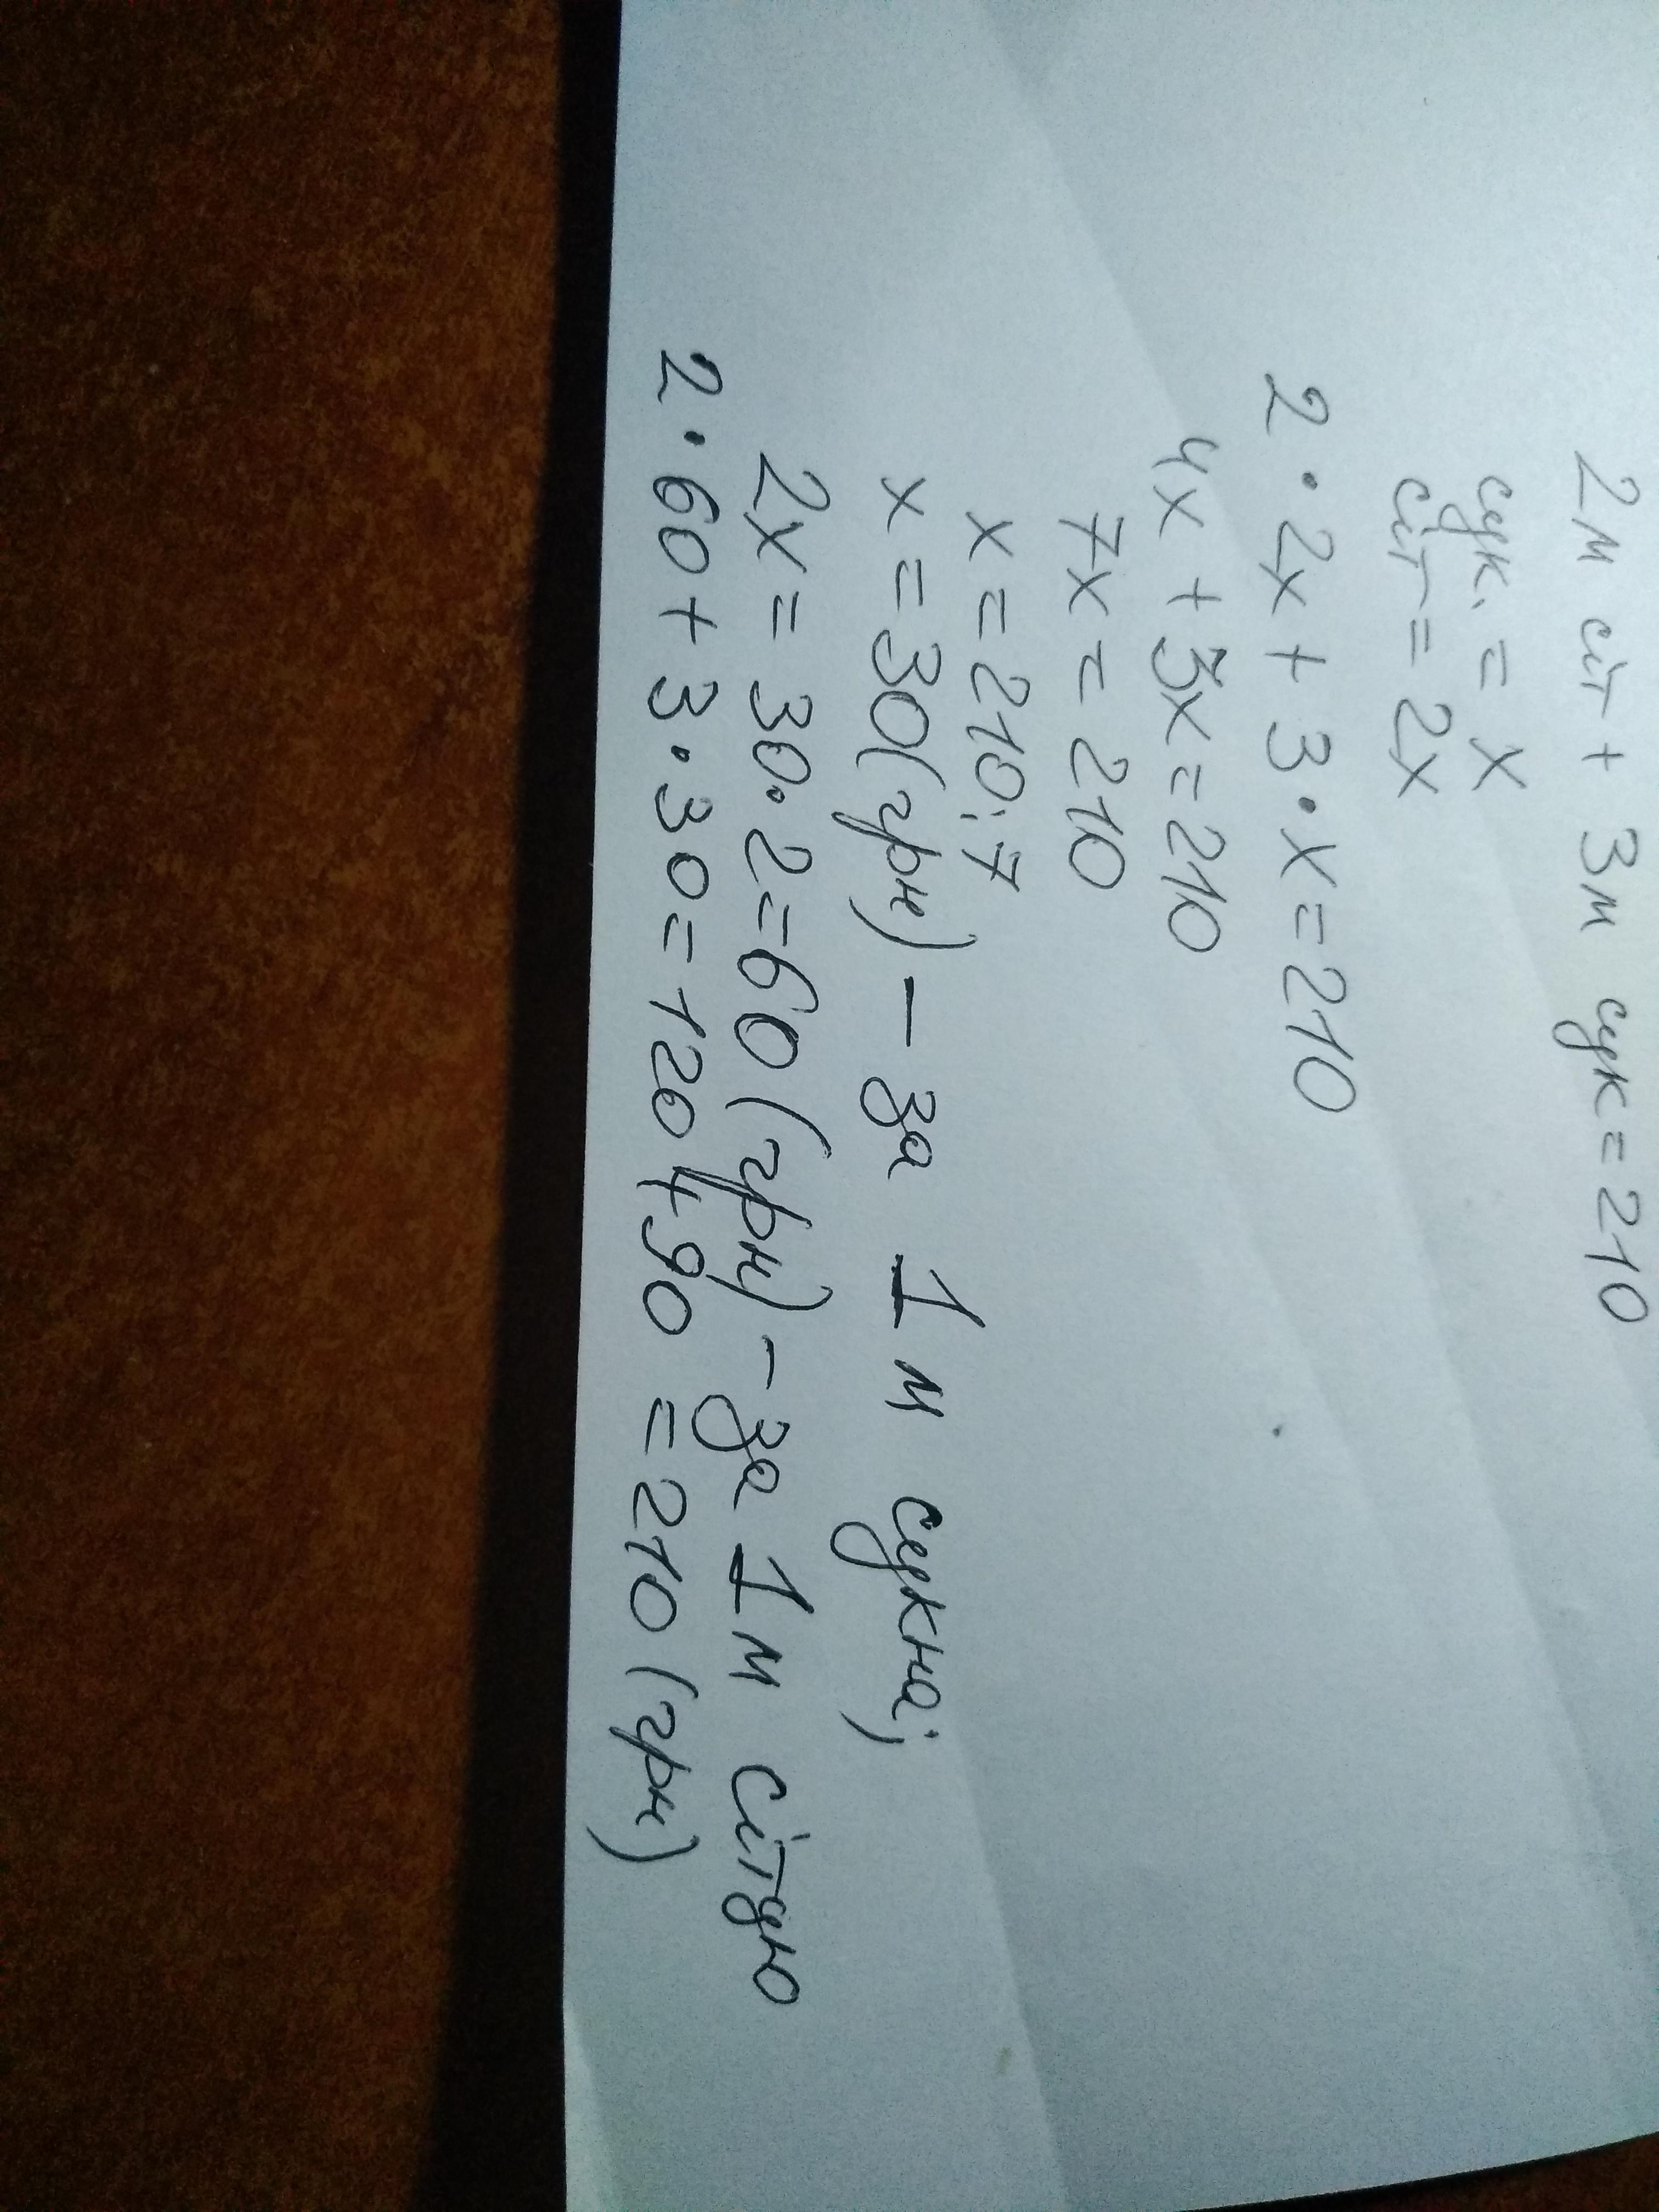 2м сіт + 3м сук = 210
сук. = х
сіт = 2х
2 · 2х + 3 · х = 210
4х + 3х = 210
7х = 210
х = 210 : 7
х = 30 (грн) – за 1 м сукна;
2х = 30 · 2 = 60 (грн) – за 1 м сітцю
2 · 60 + 3 · 30 = 120 + 90 = 210 (грн)